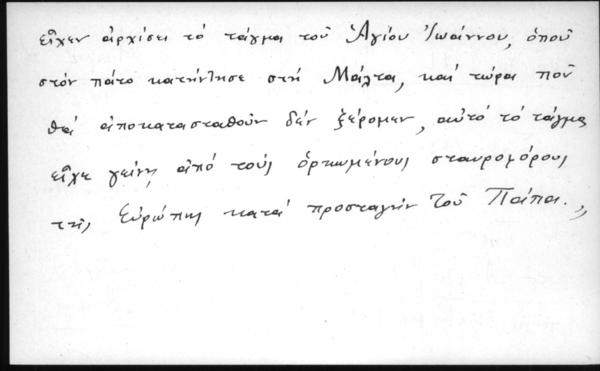 εἶχεν ἀρχίσει τό τάγμα τοῦ Ἁγίου Ἰωάννου, ὁποῦ
στόν πάτο κατήντησε στή Μάλτα, καί τώρα ποῦ
θά ἀποκατασταθοῦν δέν ξέρομεν, αὐτό τό τάγμα
εἶχε γείνῃ ἀπό τούς ὁρκωμένους σταυροφόρους
τῆς Εὐρώπης κατά προσταγήν τοῦ Πάπα.,